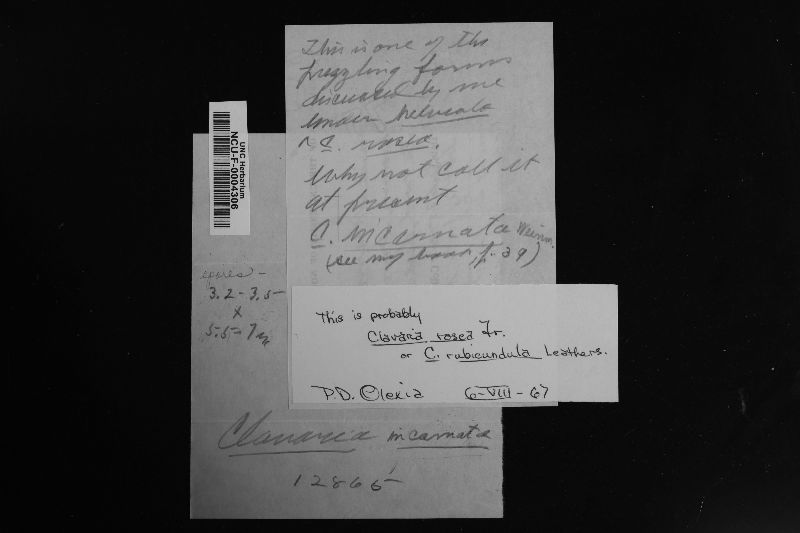 This is one of the
puzzling forms
discussed by me
under helveola
C. rosea.
Why not call it
at present
C. incarnata Weinm.
(see my book, p. 39)
UNC Herbarium
NCU-F-0004306
spores -
3.2 - 3.5
x
5.5-7 µ
This is probably
Clavaria rosea Fr.
or C. rubicundula Leathers.
P.D. Olexia 6-VIII-67
Clavaria incarnata
12865